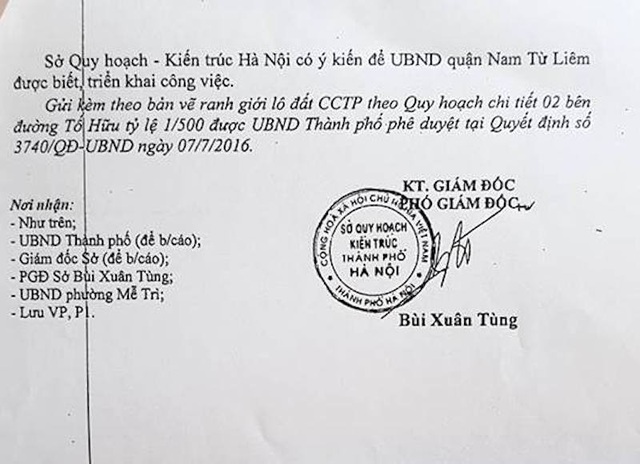 Sở Quy hoạch - Kiến trúc Hà Nội có ý kiến để UBND quận Nam Từ Liêm
được biết, triển khai công việc.
Gửi kèm theo bản vẽ ranh giới lô đất CCTP theo Quy hoạch chi tiết 02 bên
đường Tố Hữu tỷ lệ 1/500 được UBND Thành phố phê duyệt tại Quyết định số
3740/QĐ-UBND ngày 07/7/2016.
KT. GIÁM ĐỐC
PHÓ GIÁM ĐỐC
Nơi nhận:
- Như trên;
- UBND Thành phố (để b/cáo);
- Giám đốc Sở (để b/cáo);
- PGĐ Sở Bùi Xuân Tùng;
- UBND phường Mễ Trì;
- Lưu VP, P1.
CỘNG HOÀ XÃ HỘI CHỦ NGHĨA VIỆT NAM
SỞ QUY HOẠCH
KIẾN TRÚC
THÀNH PHỐ
HÀ NỘI
THÀNH PHỐ HÀ NỘI
Bùi Xuân Tùng